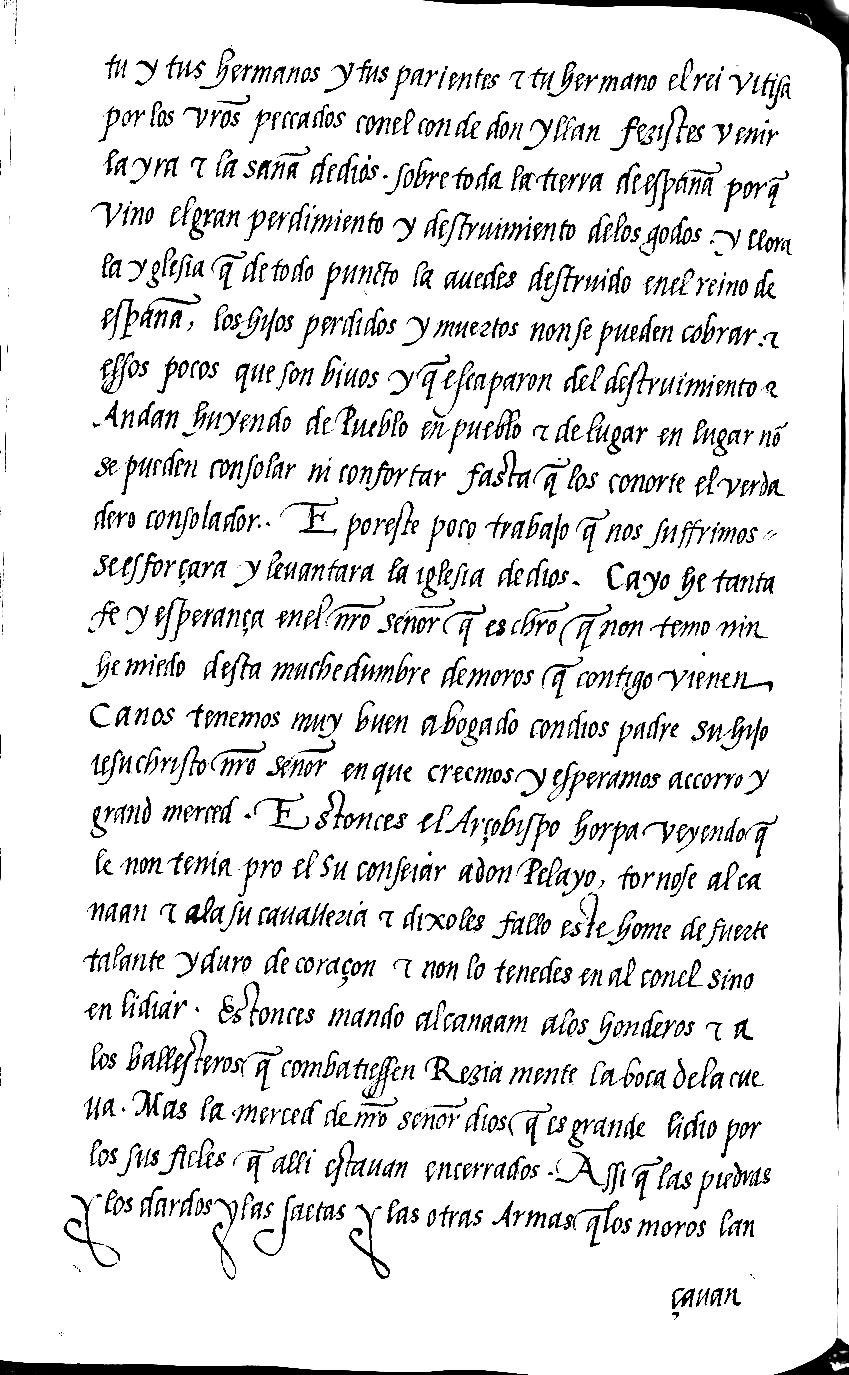 tu y tus hermanos y tus parientes τ tu hermano el rei vitisa
por los vr̃os peccados conel conde don yllan fezistes venir
la yra τ la saña dedios. sobre toda la tierra de españa porq̃
vino el gran perdimiento y destruimiento delos godos. y llora
la yglesia q̃ de todo puncto la auedes destruido enel reino de
españa, los hijos perdidos y muertos non se pueden cobrar. τ
essos pocos que son biuos y q̃ escaparon del destruimiento τ
Andan huyendo de Pueblo en pueblo τ de lugar en lugar nõ
se pueden consolar ni confortar fasta q̃ los conorte el verda
dero consolador. E poreste poco trabajo q̃ nos suffrimos
se esforçara y leuantara la iglesia dedios. Ca yo he tanta
fe y esperança enel nr̃o señor q̃ es chr̃o q̃ non temo nin
he miedo desta muchedumbre demoros q̃ contigo vienen
Canos tenemos muy buen abogado condios padre su hijo
iesuchristo nr̃o señor en que creemos y esperamos accorro y
grand merced. Estonces el Arçobispo horpa veyendo q̃
le non tenia pro el su conseiar adon Pelayo, tornose alca
naan τ ala su cavalleria τ dixoles fallo este home de fuerte
talante y duro de coraçon τ non lo tenedes en al conel sino
en lidiar. Estonces mando alcanaam alos honderos τ a
los ballesteros q̃ combatiessen Rezia mente la boca dela cue
ua. Mas la merced de nr̃o señor dios q̃ es grande lidio por
los sus fieles q̃ alli estauan encerrados. Assi q̃ las piedras
y los dardos y las saetas y las otras Armas q̃ los moros lan
çauan